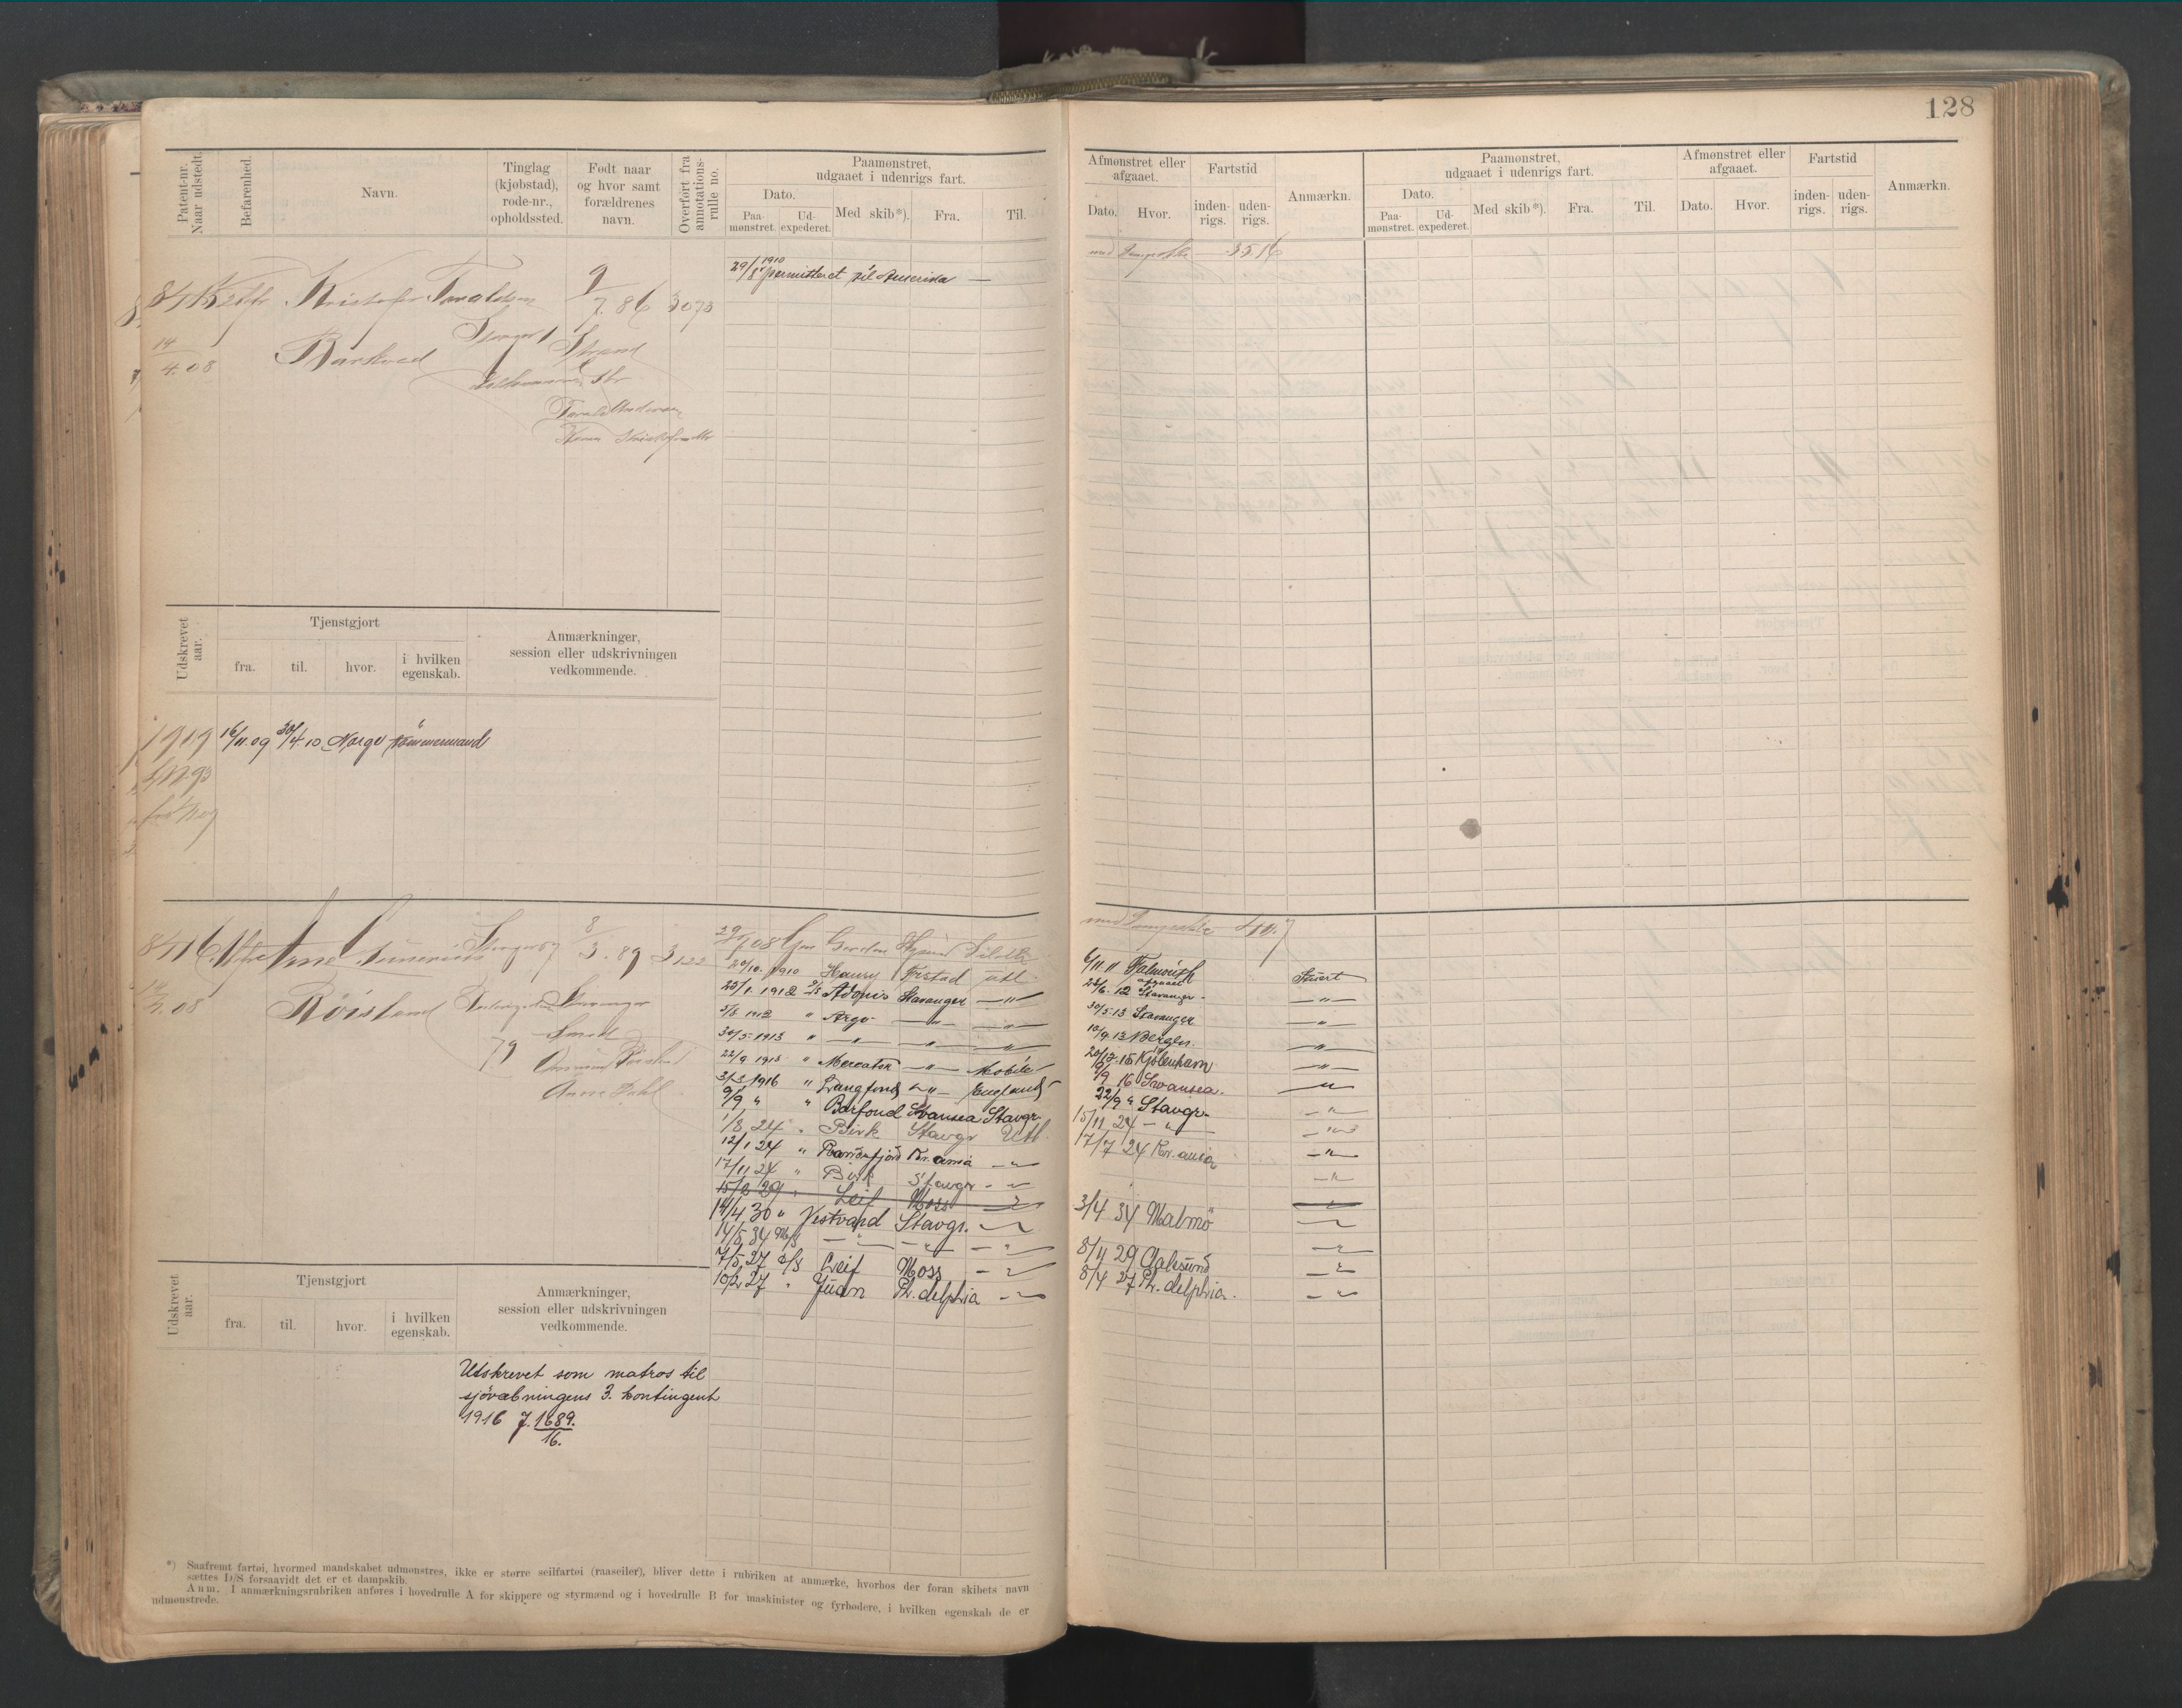 128
Patent-nr. Naar udstedt.
Befarenhed.
Navn.
Tinglag (kjøbstad), rode-nr., opholdssted.
Født naar og hvor samt forældrenes navn.
Overført fra annotations-rulle no.
Paamønstret, udgaaet i udenrigs fart.
Dato.
Paa-mønstret.
Ud-expederet.
Med skib*).
Fra.
Til.
Afmønstret eller afgaaet.
Dato.
Hvor.
Fartstid
inden-rigs.
uden-rigs.
Anmærkn.
Paamønstret, udgaaet i udenrigs fart.
Dato.
Paa-mønstret.
Ud-expederet.
Med skib*).
Fra.
Til.
Afmønstret eller afgaaet.
Dato.
Hvor.
Fartstid
inden-rigs.
uden-rigs.
Anmærkn.
Kristofer Taraldsen 9/7.86 3073
14/4.08
Barstved
Strand
Tarald Andersen
29/8 1910 permitteret til Amerika —
3516
Udskrevet aar.
Tjenstgjort
fra.
til.
hvor.
i hvilken egenskab.
Anmærkninger, session eller udskrivningen vedkommende.
1909 16/11.09 30/4.10 Norge tømmermand
8416 Arne 8/3.89 3122
Røisland Stavanger
79
Anne Dahl
20/10. 1910 Haury Fristad utl.
25/1. 1912 D/S Adonis Stavanger — " —
3/8 1912 " Argo — " — — " —
30/5-1913 " — " — — " — — " —
22/9 1915 " Mercator — " — Mobile
3/3 1916 " Langfond — " — England
9/9 " " Barfond Swansea Stavgr.
1/8 24 " Birk Stavgr Utl.
12/1 24 " Ranenfjord Kr.ania — " —
17/11 24 " Birk Stavgr. — " —
15/2 29 " Leif Moss — " —
14/4 30 " Vestvard Stavgr. — " —
14/5 34 M/S — " — — " — — " —
7/5 27 D/S Leif Moss — " —
10/2 27 " Juan Ph.delphia — " —
6/11 11 Falmouth Stuert
25/6. 12 afgaaet Stavanger — " —
30/5-13 Stavanger — " —
10/9 13 Bergen. — " —
20/12-15 Kjøbenhavn — " —
9/9 16 Swansea. — " —
22/9 " Stavgr. — " —
15/11 24 — " — — " —
17/7 24 Kr.ania — " —
3/4 34 Malmö — " —
8/11 29 Aalesund — " —
8/4 27 Ph.delphia. — " —
Udskrevet aar.
Tjenstgjort
fra.
til.
hvor.
i hvilken egenskab.
Anmærkninger, session eller udskrivningen vedkommende.
Utskrevet som matros til
sjøvæbningens 3. kontingent
1916 J. 1689.
16.
*) Saafremt fartøi, hvormed mandskabet udmønstres, ikke er større seilfartøi (raaseiler), bliver dette i rubriken at anmærke, hvorhos der foran skibets navn
sættes D/S forsaavidt det er et dampskib.
Anm. I anmærkningsrubriken anføres i hovedrulle A for skippere og styrmænd og i hovedrulle B for maskinister og fyrbødere, i hvilken egenskab de er
udmønstrede.